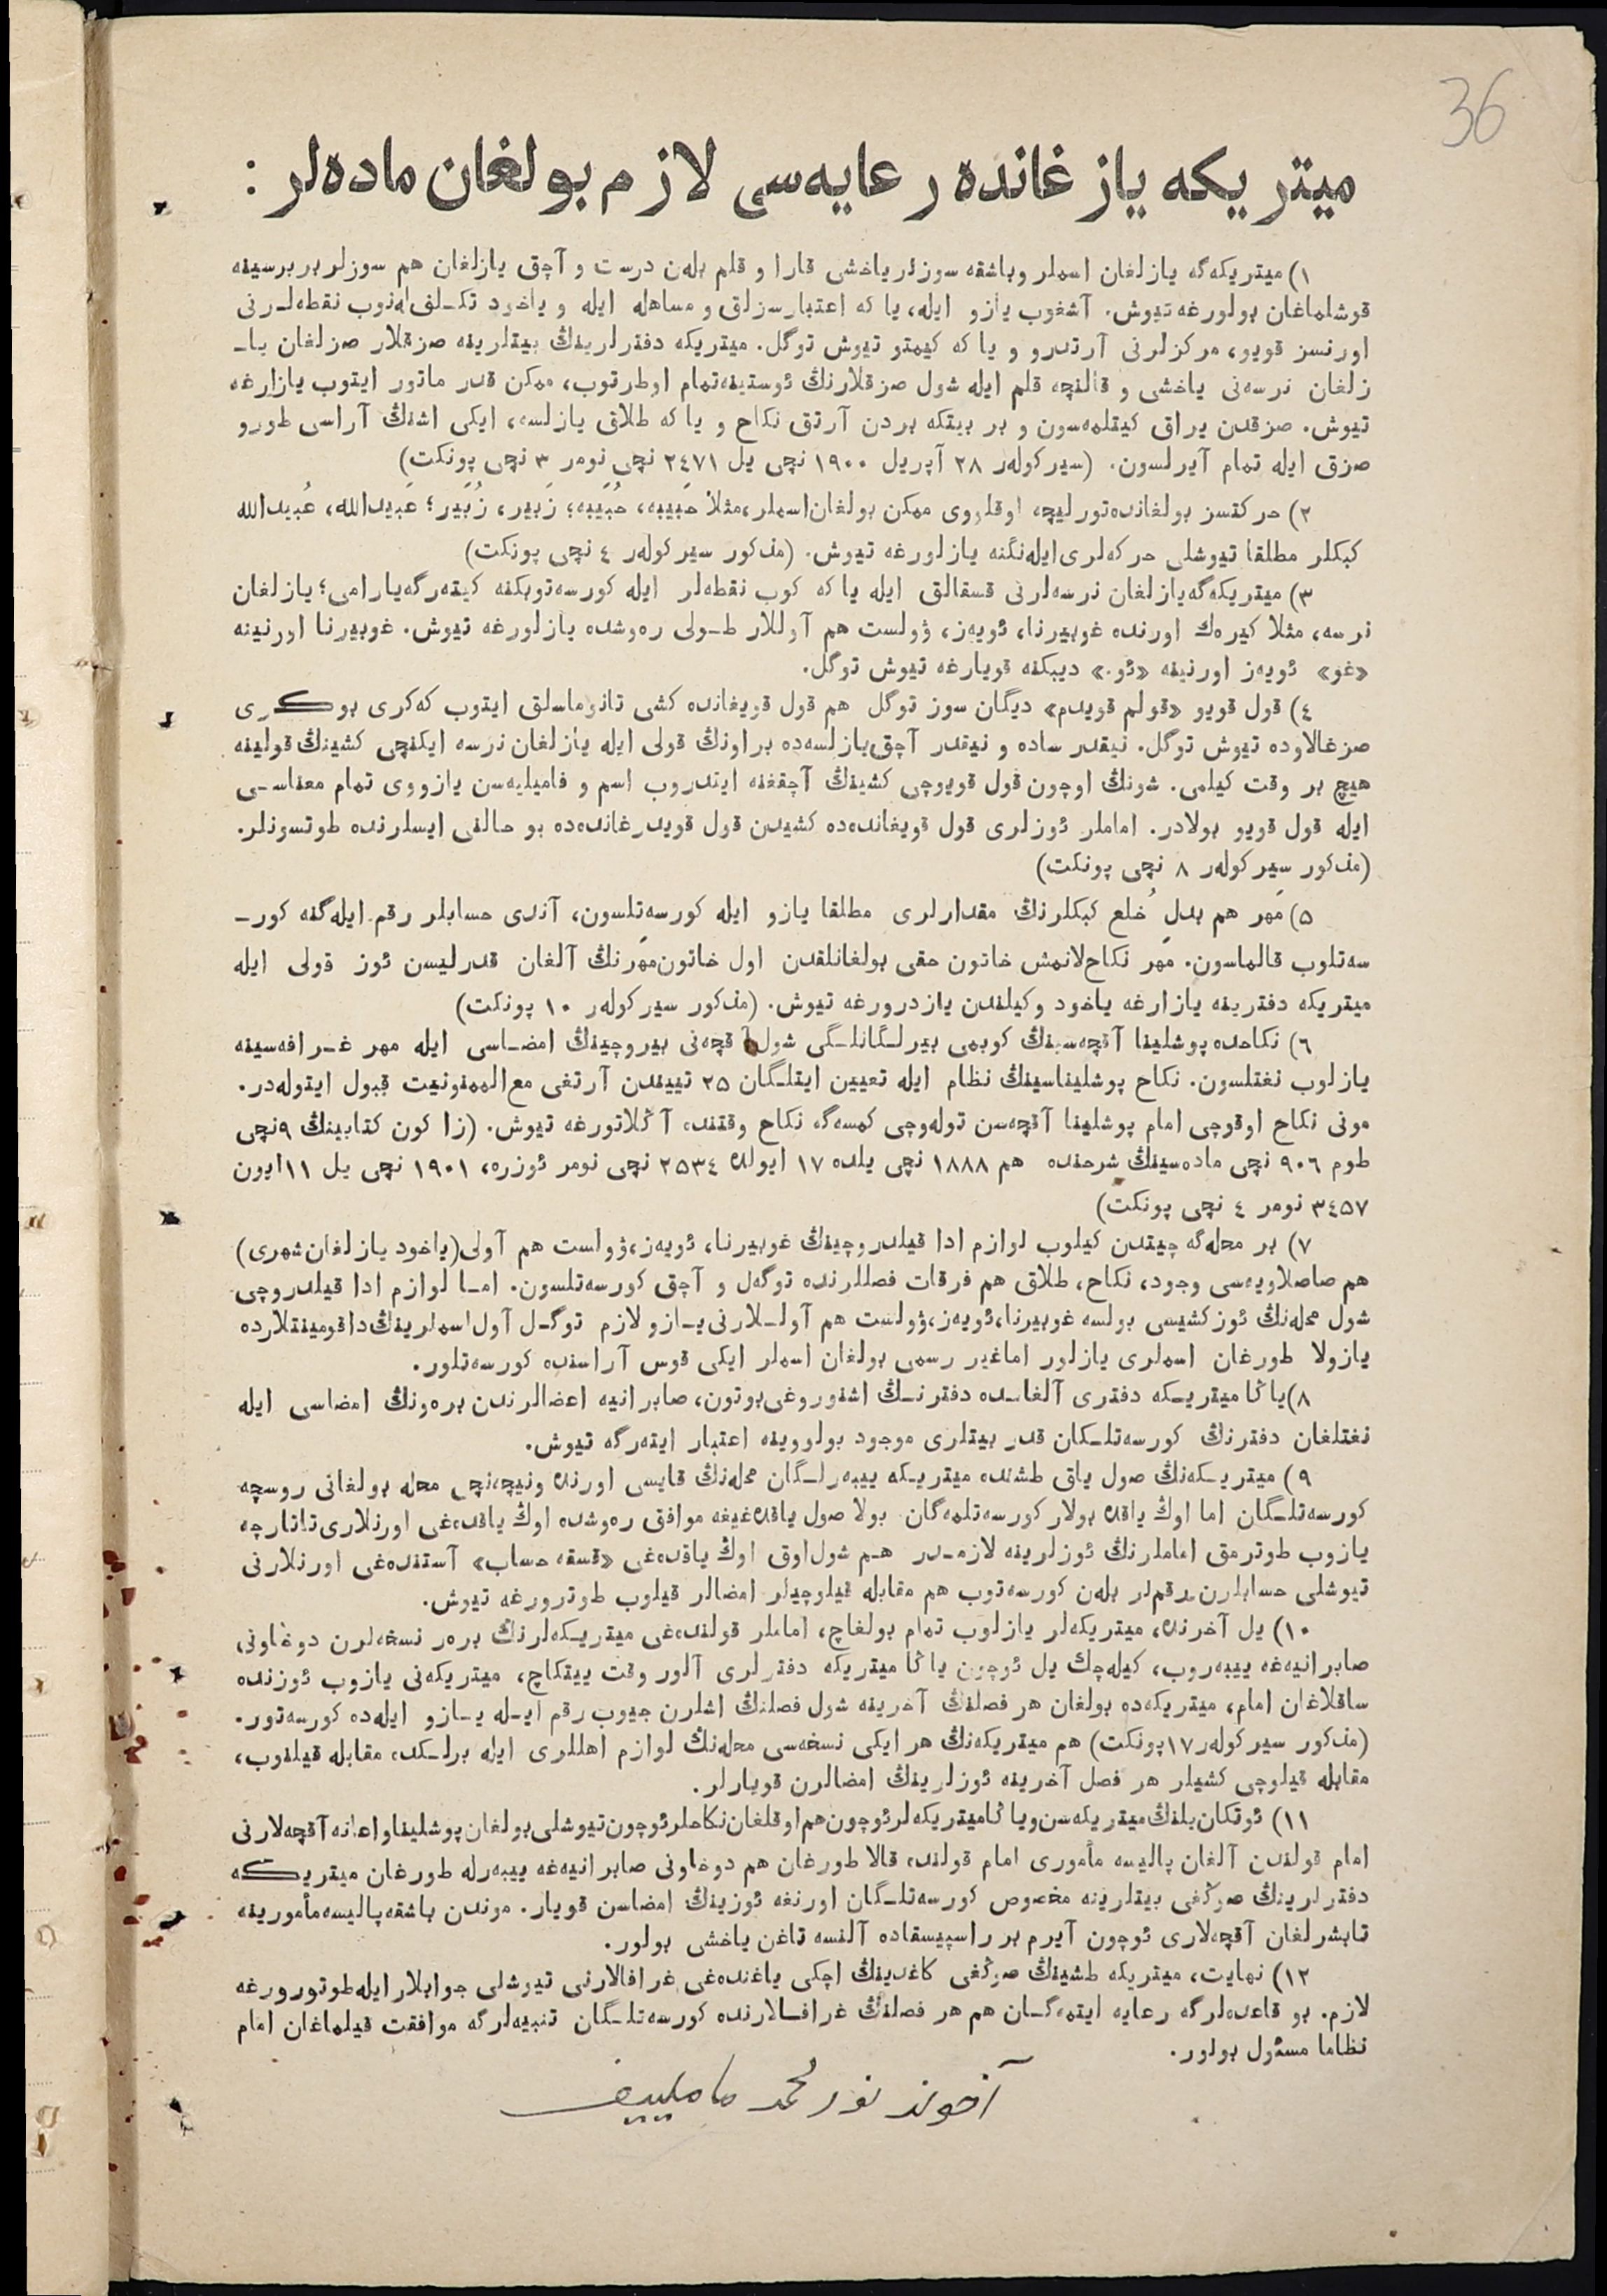 36
ميتريكه يازغانده رعايه‌سى لازم بولغان ماده‌لر :
١) ميتريكه‌گه يازلغان اسملر وباشقه سوزلر ياخشى قارا و قلم بله‌ن درست و آچق يازلغان هم سوزلر بر برسينه
قوشلماغان بولورغه تيوش. آشغوب يازو ايله، يا كه اعتبارسزلق و مساهله ايله و ياخود تكـلف‌له‌نوب نقطه‌لـرنى
اورنسز قويو، مركزلرنى آرتدرو و يا كه كيمتو تيوش توگل. ميتريكه دفترلرينڭ بيتلرينه صزقلار صزلغان يا‍ـ
زلغان نرسه‌نى ياخشى و قالنچه قلم ايله شول صزقلارنڭ ئوستينه‌تمام اوطرتوب، ممكن قدر ماتور ايتوب يازارغه
تيوش. صزقدن يراق كيتلمه‌سون و بر بيتكه بردن آرتق نكاح و يا كه طلاق يازلسه، ايكى اشنڭ آراسى طورو
صزق ايله تمام آيرلسون. (سيركولەر ٢٨ آپريل ١٩٠٠ نچى يل ٢٤٧١ نچى نومر ٣ نچى پونكت)
٢) حركتسز بولغانده‌تورليچه اوقلووى ممكن بولغان‌اسملر،مثلا حَبيبه، حُبَيبه؛ زَبير، زُبَير؛ عَبيدالله، عُبيدالله
كبكلر مطلقا تيوشلى حركه‌لرى‌ايله‌نگنه يازلورغه تيوش. (مذكور سيركولەر ٤ نچى پونكت)
٣) ميتريكه‌گه‌يازلغان نرسه‌لرنى قسقالق ايله يا كه كوب نقطه‌لر ايله كورسه‌توبكنه كيته‌رگه‌يارامى؛ يازلغان
نرسه، مثلا كيره‌ك اورنده غوبيرنا، ئويه‌ز، ۋولست هم آوللار طـولى ره‌وشده يازلورغه تيوش. غوبيرنا اورنينه
«غو» ئويه‌ز اورنينه «ئو.» ديبكنه قويارغه تيوش توگل.
٤) قول قويو «قولم قويدم» ديگان سوز توگل هم قول قويغانده كشى تانوماسلق ايتوب كه‌كرى بوكـرى
صزغالاوده تيوش توگل. نيقدر ساده و نيقدر آچق‌يازلسه‌ده براونڭ قولى ايله يازلغان نرسه ايكنچى كشينڭ قولينه
هيچ بر وقت كيلمى. شونڭ اوچون قول قويوچى كشينڭ آچقغنه ايتدروب اسم و فاميليه‌سن يازووى تمام معناسـى
ايله قول قويو بولادر. اماملر ئوزلرى قول قويغانده‌ده كشيدن قول قويدرغانده‌ده بو حالنى ايسلرنده طوتسونلر.
(مذكور سيركولەر ٨ نچى پونكت)
٥) مَهر هم بدل خُلع كبكلرنڭ مقدارلرى مطلقا يازو ايله كورسه‌تلسون، آندى حسابلر رقم ايله‌گنه كورـ
سه‌تلوب قالماسون. مَهر نكاح‌لانمش خاتون حقى بولغانلقدن اول خاتون‌مَهرنڭ آلغان قدرليسن ئوز قولى ايله
ميتريكه دفترينه يازارغه ياخود وكيلندن يازدرورغه تيوش. (مذكور سيركولەر ١٠ پونكت)
٦) نكاحده پوشلينا آقچه‌سينڭ كوبمى بيرلـگانلـگى شول آقچه‌نى بيروچينڭ امضـاسى ايله مهر غـرافه‌سينه
يازلوب نغتلسون. نكاح پوشليناسينڭ نظام ايله تعيين ايتلـگان ٢٥ تييندن آرتغى مع‌الممنونيت قبول ايتوله‌در.
مونى نكاح اوقوچى امام پوشلينا آقچه‌سن توله‌وچى كمسه‌گه نكاح وقتنده آڭلاتورغه تيوش. (زاكون كتابينڭ ٩نچى
طوم ٩٠٦ نچى ماده‌سينڭ شرحنده هم ١٨٨٨ نچى يلده ١٧ ايولده ٢٥٣٤ نچى نومر ئوزره، ١٩٠١ نچى يل ١١ايون
٣٤٥٧ نومر ٤ نچى پونكت)
٧) بر محله‌گه چيتدن كيلوب لوازم ادا قيلدروچينڭ غوبيرنا، ئويه‌ز،ۋولست هم آولى(ياخود يازلغان‌شهرى)
هم صاصلاويه‌سى وجود، نكاح، طلاق هم فرقات فصللرنده توگه‌ل و آچق كورسه‌تلسون. امـا لوازم ادا قيلدروچى
شول محله‌نڭ ئوز كشيسى بولسه غوبيرنا،ئويه‌ز،ۋولست هم آولـلارنى‌يـازو لازم توگـل آول‌اسملرينڭ‌داقومينتلارده
يازولا طورغان اسملرى يازلور اماغير رسمى بولغان اسملر ايكى قوس آراسنده كورسه‌تلور.
٨)ياڭا ميتريـكه دفترى آلغانـده دفترنـڭ اشنوروغى‌بوتون، صابرانيه اعضالرندن بره‌ونڭ امضاسى ايله
نغتلغان دفترنڭ كورسه‌تلـكان قدر بيتلرى موجود بولووينه اعتبار ايته‌رگه تيوش.
٩) ميتريـكه‌نڭ صول ياق طشنده ميتريـكه ييبه‌رلـگان محله‌نڭ قايسى اورنده ونيچه‌نچى محله بولغانى روسچه
كورسه‌تلـگان اما اوڭ ياقده بولار كورسه‌تلمه‌گان. بولا صول ياقده‌غيغه موافق ره‌وشده اوڭ ياقده‌غى اورنلارى‌تاتارچه
يازوب طوترمق اماملرنڭ ئوزلرينه لازمـدر هـم شول‌اوق اوڭ ياقده‌غى «قسقه حساب» آستنده‌غى اورنلارنى
تيوشلى حسابلرن‌رقم‌لر بله‌ن كورسه‌توب هم مقابله قيلوچيلر امضالر قيلوب طوترورغه تيوش.
١٠) يل آخرنده، ميتريكه‌لر يازلوب تمام بولغاچ، اماملر قولنده‌غى ميتريـكه‌لرنڭ بره‌ر نسخه‌لرن دوخاونى
صابرانيه‌غه ييبه‌روب، كيله‌چك يل ئوچون ياڭا ميتريكه دفترلرى آلور وقت ييتكاچ، ميتريكه‌نى يازوب ئوزنده
ساقلاغان امام، ميتريكه‌ده بولغان هر فصلنڭ آخرينه شول فصلنڭ اشلرن جيوب رقم ايـله يـازو ايله‌ده كورسه‌تور.
(مذكور سيركولەر ١٧پونكت) هم ميتريكه‌نڭ هر ايكى نسخه‌سى محله‌نڭ لوازم اهللرى ايله برلـكده مقابله قيلنوب،
مقابله قيلوچى كشيلر هر فصل آخرينه ئوزلرينڭ امضالرن قويارلر.
١١) ئوتكان‌يلنڭ‌ميتريكه‌سن‌وياڭاميتريكه‌لرئوچون‌هم‌اوقلغان‌نكاحلرئوچون‌تيوشلى‌بولغان‌پوشليناواعانه‌آقچه‌لارنى
امام قولندن آلغان پاليسه مأمورى امام قولنده قالا طورغان هم دوخاونى صابرانيه‌غه ييبه‌رله طورغان ميتريكـه
دفترلرينڭ صوڭغى بيتلرينه مخصوص كورسه‌تلـگان اورنغه ئوزينڭ امضاسن قويار. موندن باشقه‌پاليسه‌مأمورينه
تابشرلغان آقچه‌لارى ئوچون آيرم بر راسپيسقاده آلنسه تاغن ياخشى بولور.
١٢) نهايت، ميتريكه طشينڭ صوڭغى كاغدينڭ اچكى ياغنده‌غى غرافالارنى تيوشلى جوابلار ايله‌طوتورورغه
لازم. بو قاعده‌لرگه رعايه ايتمه‌گـان هم هر فصلنڭ غرافـالارنده كورسه‌تلـگان تنبيه‌لرگه موافقت قيلماغان امام
نظاما مسئول بولور.
آخوند نورمحمد ماملييف